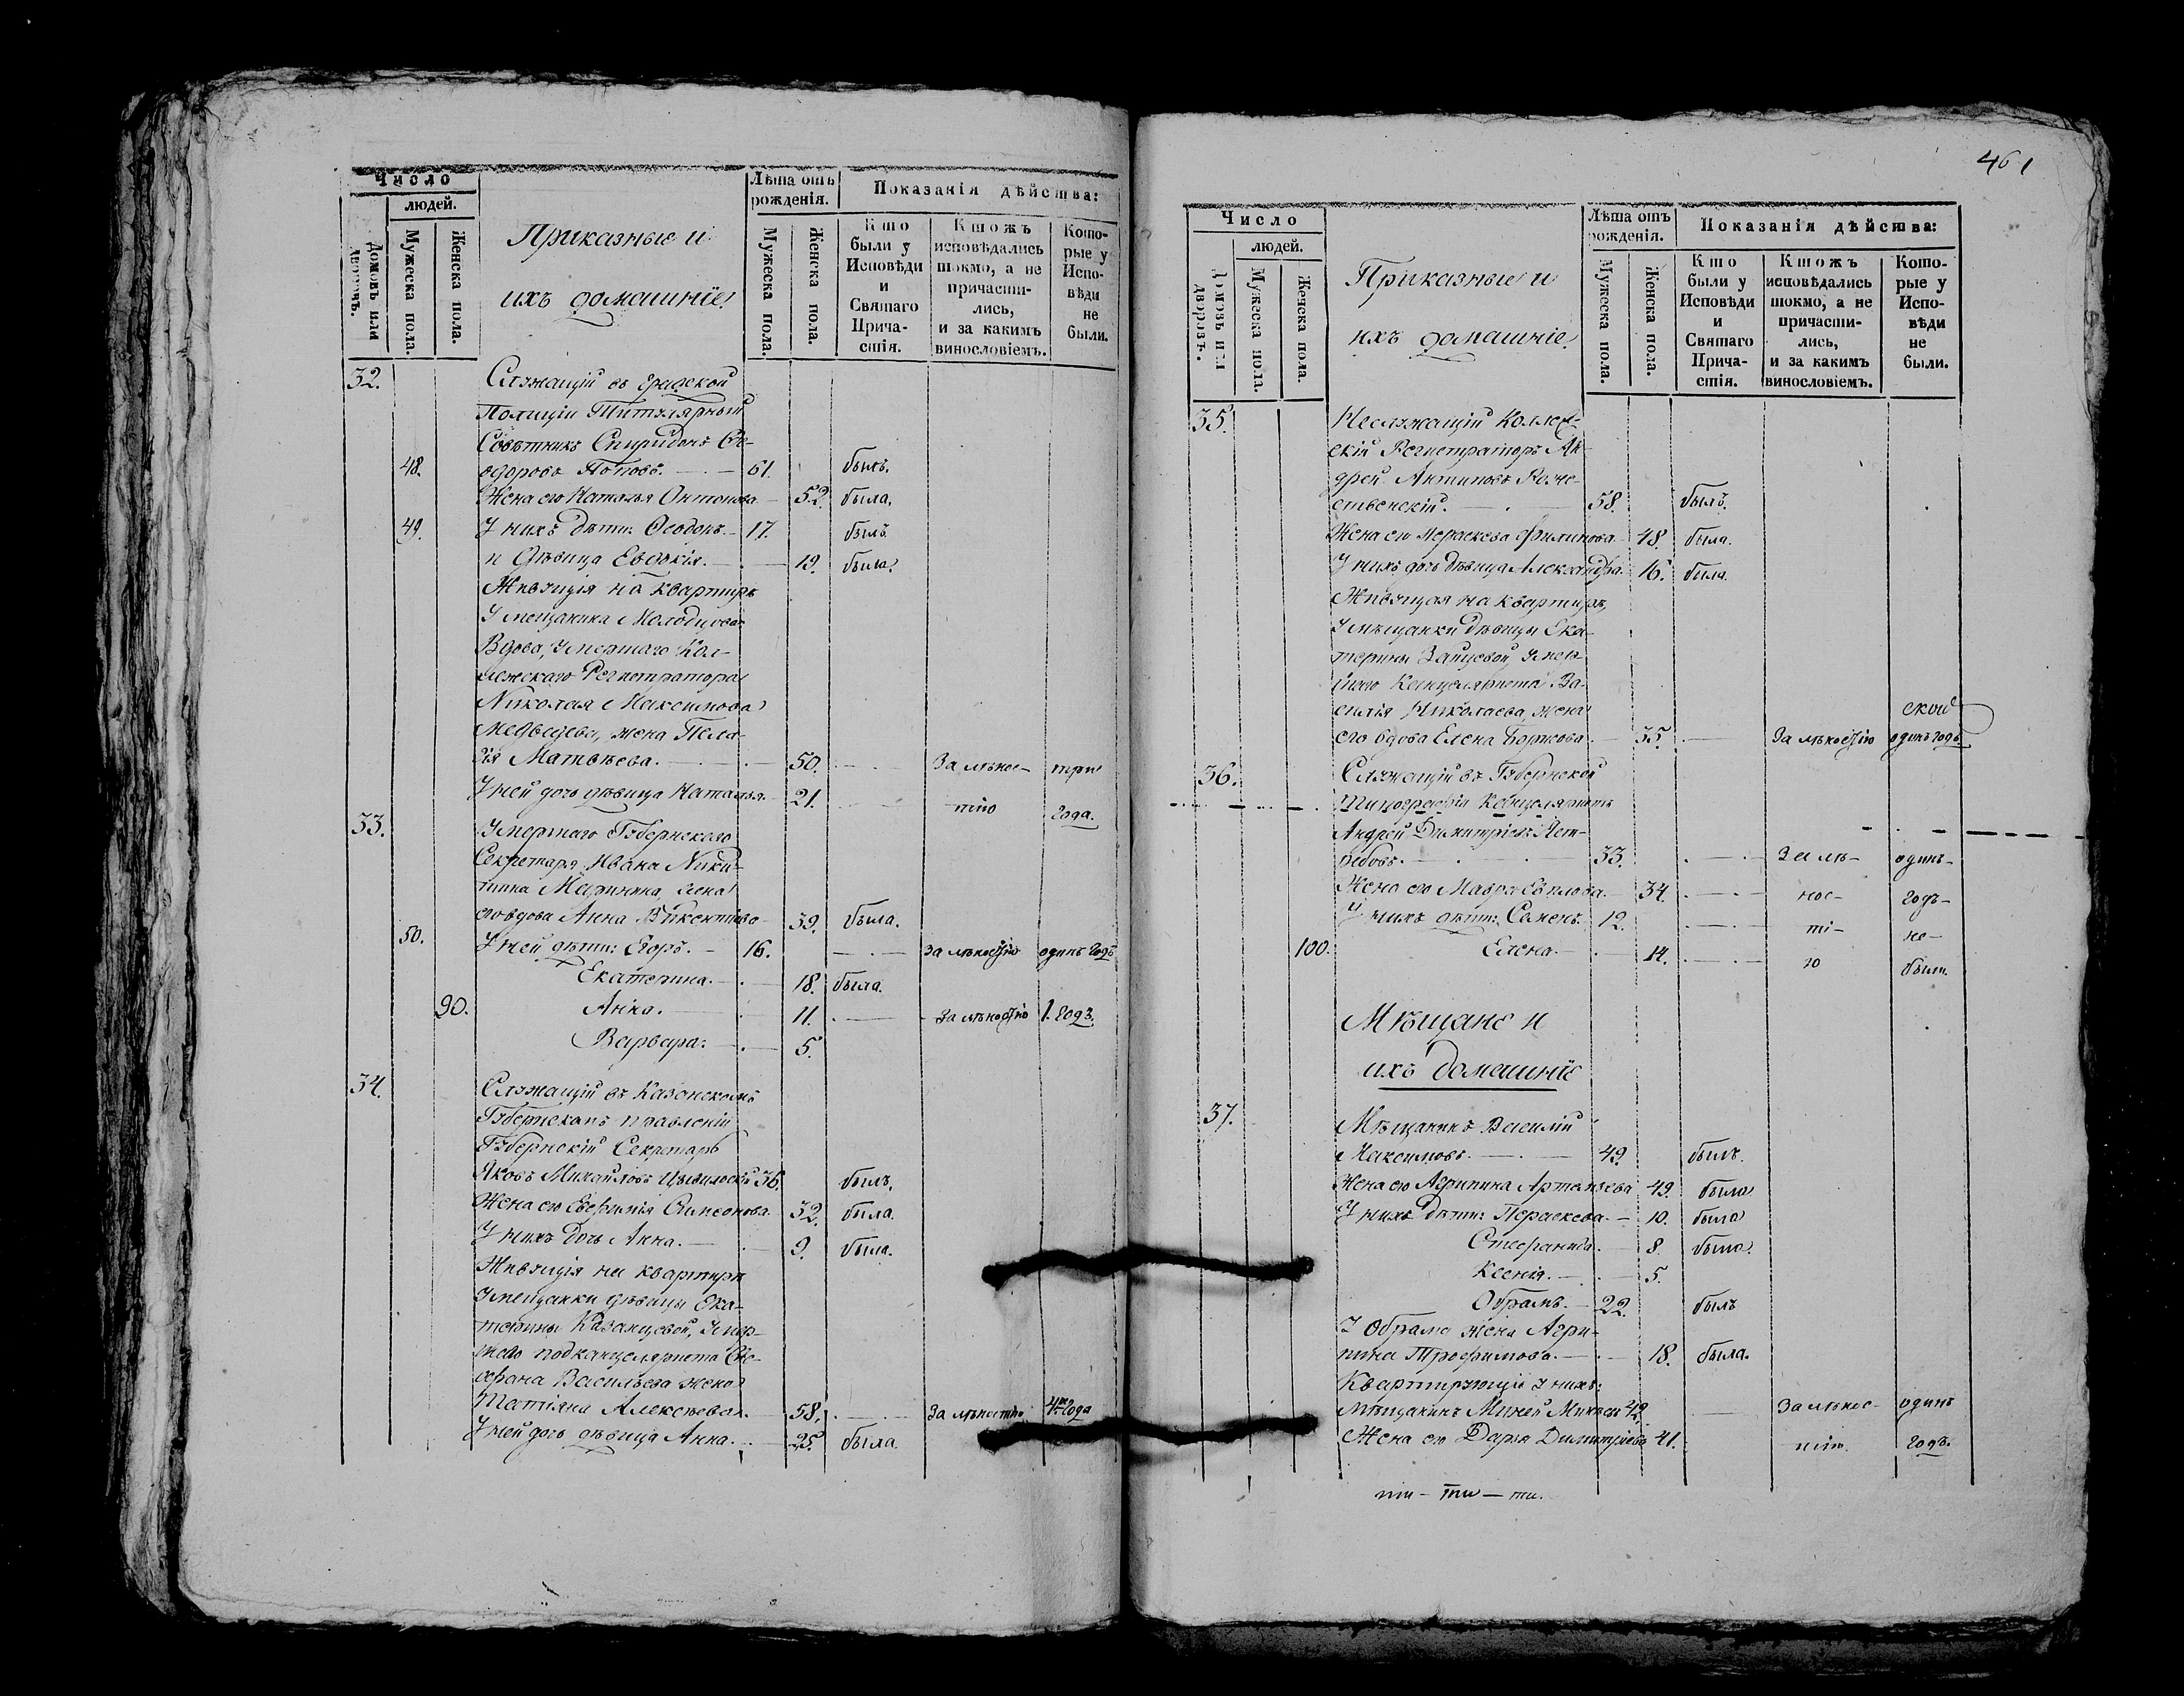 Число
людей.
Домовъ или дворовъ.
Мужеска пола.
Женска пола.
Приказные и
ихъ домашніе
Лѣта отъ
рожденія.
Мужеска пола.
Женска пола.
Показанія дѣйства:
Кто
были у
Исповѣди
и
Святаго
Прича-
стія.
Ктожъ
исповѣдались
токмо, а не
причасти-
лись,
и за какимъ
винословіемъ.
Кото-
рые у
Испо-
вѣди
не
были.
32. Служащій въ градской
Полиціи Титулярный
Совѣтникъ Спиридонъ Ѳе-
48. одоровъ Поповъ. 61. былъ.
Жена его Наталья Онтонова 52. была.
49. У нихъ дѣти: Ѳеодоръ. 17. былъ
и дѣвица Евдокія. 19. была.
Живущія на квартирѣ
У мещанина Молодцова
Вдова, умершаго Кол-
лежскаго Регистратора
Николая Максимова
Медведева, жена Пела-
гія Матвѣева. 50. За лѣнос- три
У ней дочь дѣвица Наталья. 21. тію года.
33. Умершаго Губернскаго
Секретаря Ивана Ники-
тина жена
его вдова Анна 39. была.
50. У ней дѣти: Егоръ. 16. за лѣностію одинъ годъ
Екатерина. 18. была.
90. Анна. 11. за лѣностію 1. годъ.
Варвара. 5.
34. Служащій въ Казанскомъ
Губернскомъ правленіи
Губернскій Секретарь
Яковъ Михайловъ 36. былъ.
Жена его Евфимія Симеонова. 32. была.
У нихъ дочь Анна. 9. была.
Живущія на квартирѣ
У мещанки дѣвицы Ека-
терины Казанцевой, умер-
шаго подканцеляриста Сте-
фана Васильева жена
Татіяна Алексѣева. 58. За лѣностію 4ре года
У ней дочь дѣвица Анна. 25. была.
461
Число
людей.
Домовъ или дворовъ.
Мужеска пола.
Женска пола.
Приказные и
ихъ домашніе
Лѣта отъ
рожденія.
Мужеска пола.
Женска пола.
Показанія дѣйства:
Кто
были у
Исповѣди
и
Святаго
Прича-
стія.
Ктожъ
исповѣдались
токмо, а не
причасти-
лись,
и за какимъ
винословіемъ.
Кото-
рые у
Испо-
вѣди
не
были.
35. Неслужащій Коллеж-
скій Регистраторъ Ан-
дрей Антиповъ Рожде-
ственскій. 58. былъ.
Жена его Параскева Филипова 48. была.
У нихъ дочь дѣвица Александра. 16. была.
Живущая на квартирѣ,
У мѣщанки дѣвицы Ека-
терины Зайцевой, умер-
шаго Канцеляриста Ва-
силія Николаева, жена
его вдова Елена 35. За лѣностію одинъ годъ
36. Служащій въ Губернской
Типографіи Канцеляристъ
Андрей Димитріевъ
33. За лѣ- одинъ
Жена его Мавра 34. нос- годъ
У нихъ дѣти: Семенъ 12. ті- не-
100. Елена. 14. ю были.
Мѣщане и
ихъ домашніе
37. Мѣщанинъ Василій
Максимовъ. 49. былъ.
Жена его Агрипина Артемьева 49. была
У нихъ дѣти: Параскева. 10. была
Стефанида. 8. была.
Ксенія. 5.
Обрамъ. 22. былъ
У Обрама жена Агри-
пина Трофимова. 18. была.
Квартирующіе у нихъ:
Мѣщанинъ Михей 42. За лѣнос- одинъ
Жена его Дарья Димитріева 41. тію. годъ.